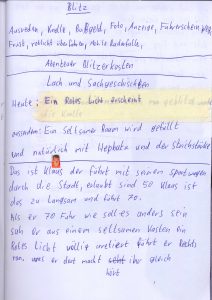 Blitz
Ausreden, Knolle, Bußgeld, Foto, Anzeige, Führerschein weg
Frust, rotlicht überfahren, Mobile Radarfalle,
Abenteuer Blitzerkosten
Lach und Sachgeschichten
Heute: Ein Rotes Licht erscheint
die Knolle
ausserdem: Ein seltsamer Raum wird gefüllt
und natürlich mit Hepbutn und der Strichstücke
Das ist Klaus der fährt mit seinem Sportwagen
durch die Stadt, erlaubt sind 50 Klaus ist
das zu langsam und fährt 70.
Als er 70 fuhr wie soll es anders sein
sah er aus einem seltsamen Kasten ein
Rotes Licht völlig irritiert fährt er Rechts
ran, was er dort macht seht ihr gleich
hört